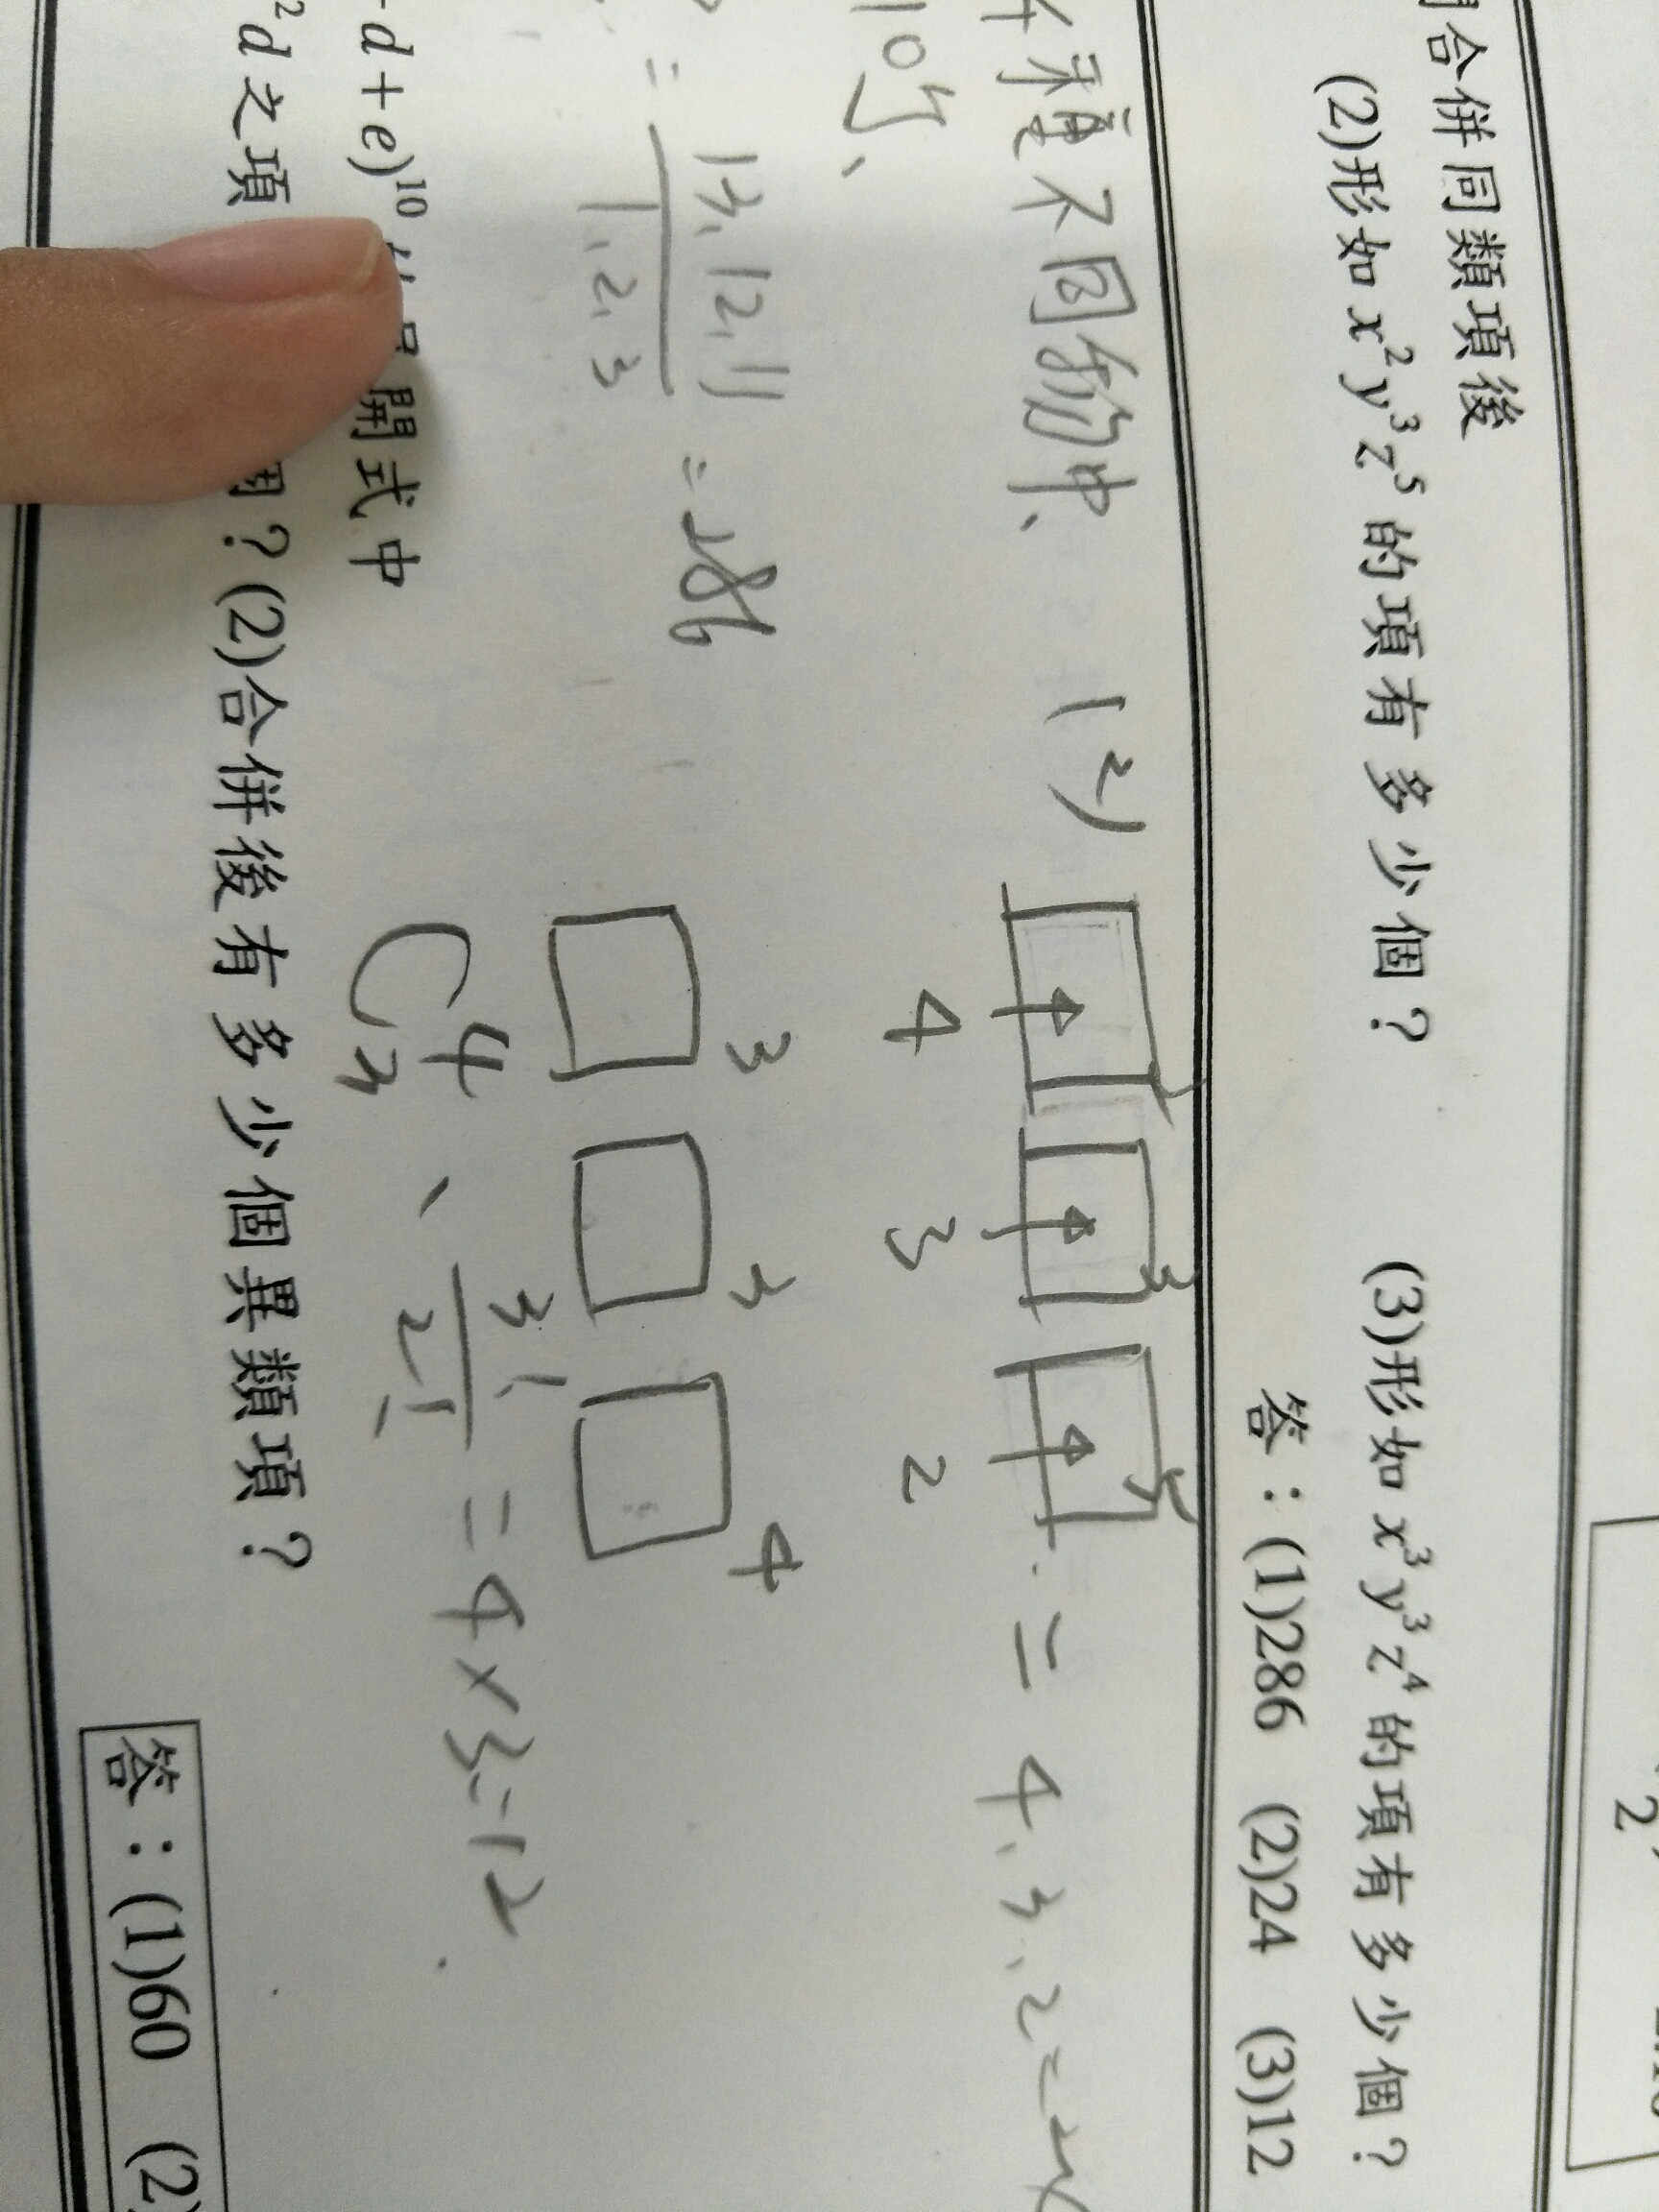 合併同類項後
(2)形如 x²y³z⁵ 的項有多少個？ (3)形如 x³y³z⁴ 的項有多少個？
答：(1)286 (2)24 (3)12
4種不同物中、 (2) 2 3 5 = 4.3.2=24
4 3 2
10次、
= 13.12.11 / 1.2.3 = 286
3 3 4
C⁴₃ · 3! / 2! = 4×3=12
d + e)¹⁰ 開式中
²d之項 ？(2)合併後有多少個異類項？
答：(1)60 (2)
2